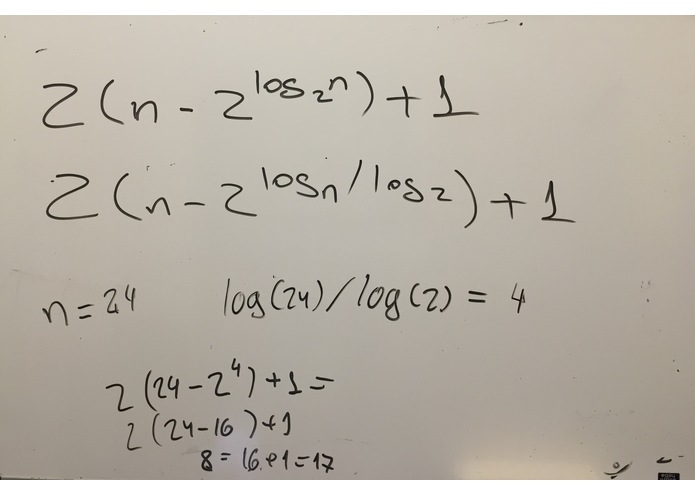 2(n - 2^log₂n) + 1
2(n - 2^logn/log2) + 1
n = 24 log(24)/log(2) = 4
2(24 - 2^4) + 1 =
2(24 - 16) + 1
8 = 16 + 1 = 17